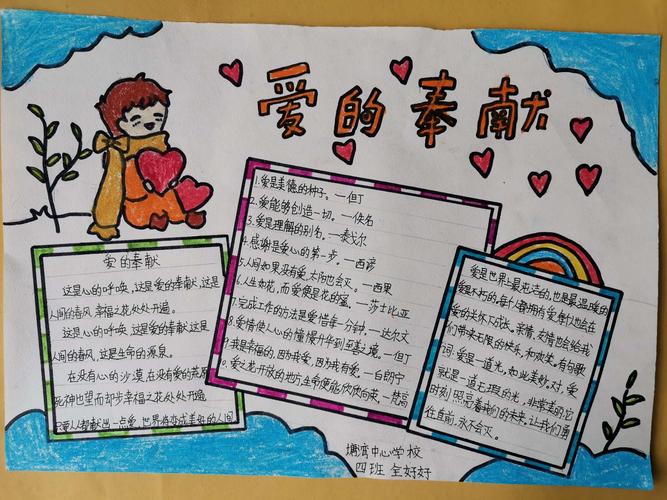 爱的奉献
爱的奉献
这是心的呼唤,这是爱的奉献,这是
人间的春风,幸福之花处处开遍。
这是心的呼唤,这是爱的奉献,这是
人间的春风,这是生命的源泉。
在没有心的沙漠,在没有爱的荒原
死神也望而却步,幸福之花处处开遍
只要人人都献出一点爱,世界将变成美好的人间
1.爱是美德的种子。—但丁
2.爱能够创造一切。—佚名
3.爱是理解的别名。—泰戈尔
4.感谢是爱心的第一步。—西谚
5.人间如果没有爱,太阳也会灭。—西果
6.人生如花,而爱便是花的蜜。—莎士比亚
7.完成工作的方法是爱惜每一分钟。—达尔文
8.爱情使人心的憧憬升华到至善之境。—但丁
9.我是幸福的,因为我爱,因为我有爱。—白朗宁
爱之花开放的地方,生命便能欣欣向荣。—梵高
爱是世界上最
爱是不朽的,每个人都拥有爱,每个人也会在
爱的关怀下成长。亲情、友情也会给我
们带来无限的快乐,和欢笑。有句歌
词:爱是一道光,如此美妙。对,爱
就是一道无瑕的光,非常美丽,它
时刻照亮着我们的未来。让我们勇
往直前,永不会灭。
塘湾中心学校
四班 全好好